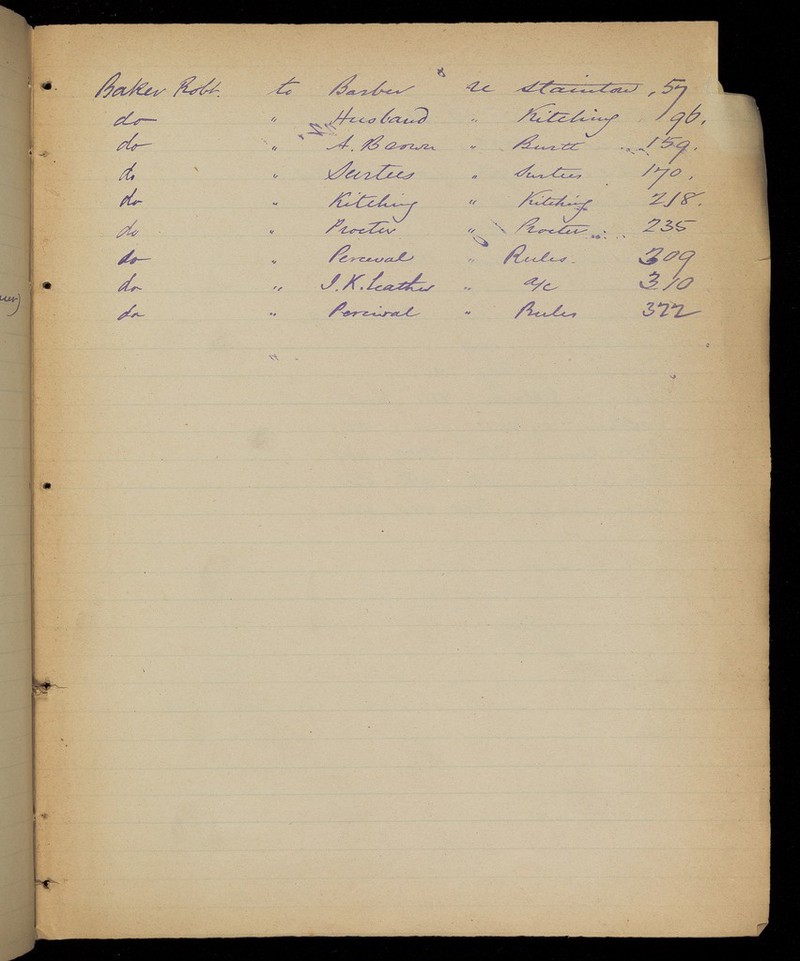 Baker Robt. to Barber re Stainton, 57
do " Husband " Kitching 196.
do " A. Brown " Burtt 159.
do " Surtees " Surtees 170.
do " Kitching " Kitching 218.
do " Procter " Procter 235
do " Perceval " Rules. 309
do " I. K. Leather " a/c 310
do " Percival " Rules 322
"